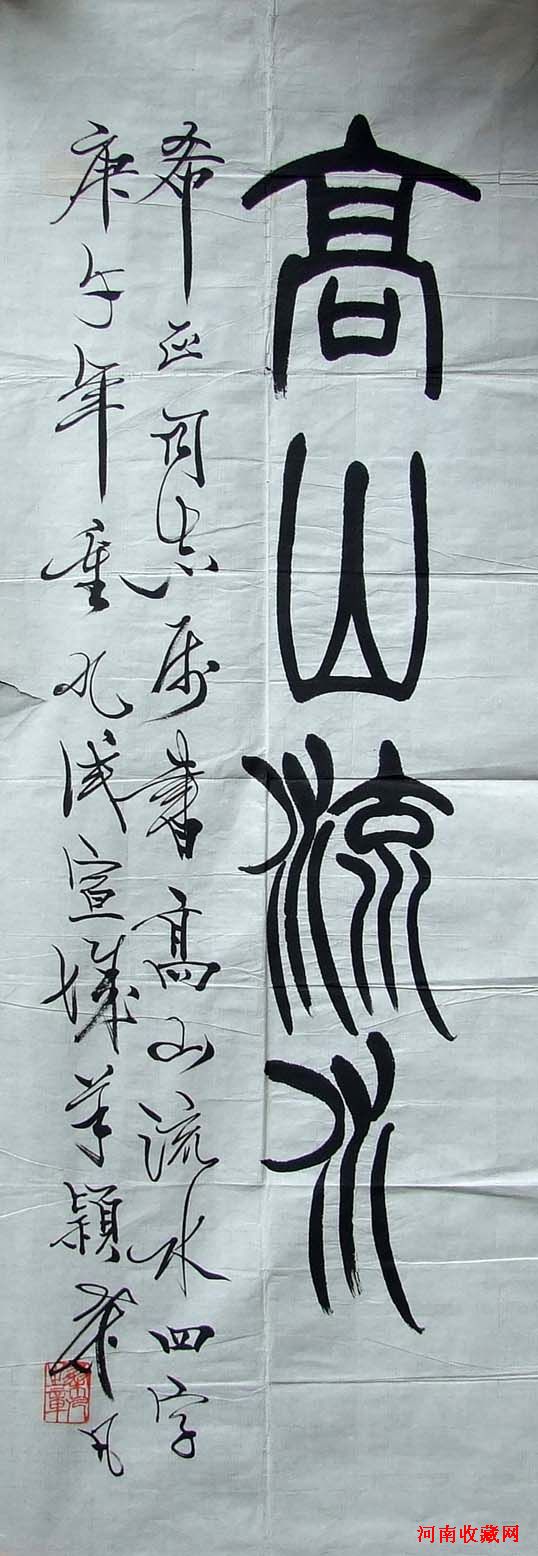 高山流水
希正同志属书高山流水四字
庚午年重九试宣城羊颖
河南收藏网